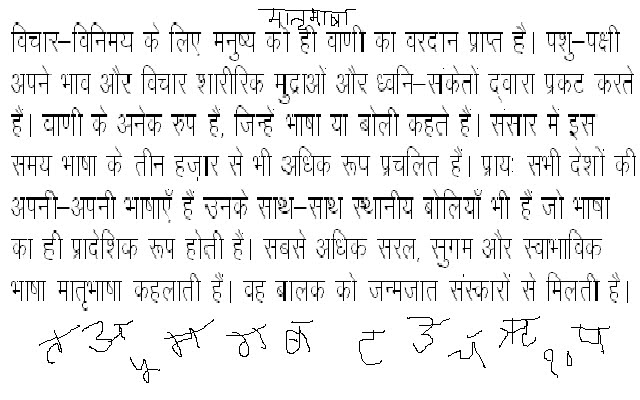 मातृभाषा
विचार-विनिमय के लिए मनुष्य को ही वाणी का वरदान प्राप्त है। पशु-पक्षी
अपने भाव और विचार शारीरिक मुद्राओं और ध्वनि-संकेतों द्वारा प्रकट करते
हैं। वाणी के अनेक रुप हैं, जिन्हें भाषा या बोली कहते हैं। संसार में इस
समय भाषा के तीन हज़ार से भी अधिक रूप प्रचलित हैं। प्रायः सभी देशों की
अपनी-अपनी भाषाएँ हैं उनके साथ-साथ स्थानीय बोलियाँ भी हैं जो भाषा
का ही प्रादेशिक रूप होती हैं। सबसे अधिक सरल, सुगम और स्वाभाविक
भाषा मातृभाषा कहलाती हैं। वह बालक को जन्मजात संस्कारों से मिलती है।
त अ ५ म ग क ट उ ऋ १० प